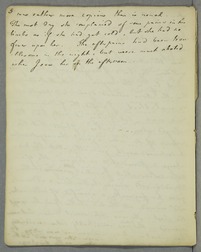 I was rather more copious than is usual.
The next day she complained of some pains in her
limbs as if she had got cold, but she had no
fever upon her. The afterpains had been
in the night, but were much abated
when I saw her in the afternoon.